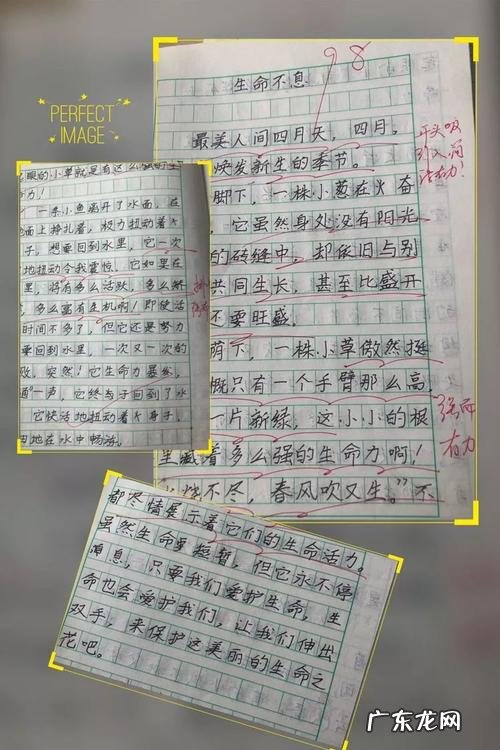 PERFECT
IMAGE
98
生命不息
最美人间四月天，四月，
焕发新生的季节。
脚下，一株小葱在火奋
，它虽然身处没有阳光
的砖缝中，却依旧与别
共同生长，甚至比盛开
还要旺盛。
荫下，一株小草傲然挺
概只有一个手臂那么高，
一片新绿，这小小的根
里藏着多么强的生命力啊！
烧不尽，春风吹又生。”不
开头吸
引人，问
强而
有力
眼的小草就是有这么强的生
力！
一条小鱼离开了水面，在
面上挣扎着，极力扭动着
子，想要回到水里，它一次
地扭动令我震惊。它如果在
里，将有多么活跃，多么新
，多么富有生机啊！即使活
时间不多了，但它还是努力
要回到水里，一次又一次的
败，突然！它生命力暴丝，
通”一声，它终于回到了水
它快活地扭动着身子，
由地在水中畅游。
都尽情显示着它们的生命活力。
虽然生命虽短暂，但它永不停
息，只要我们爱护生命，生
命也会爱护我们，让我们伸出
双手，来保护这美丽的生命之
花吧。
广东龙网